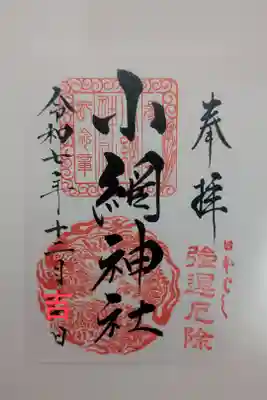 奉拝
強運厄除
小網神社
令和七年十二月吉日